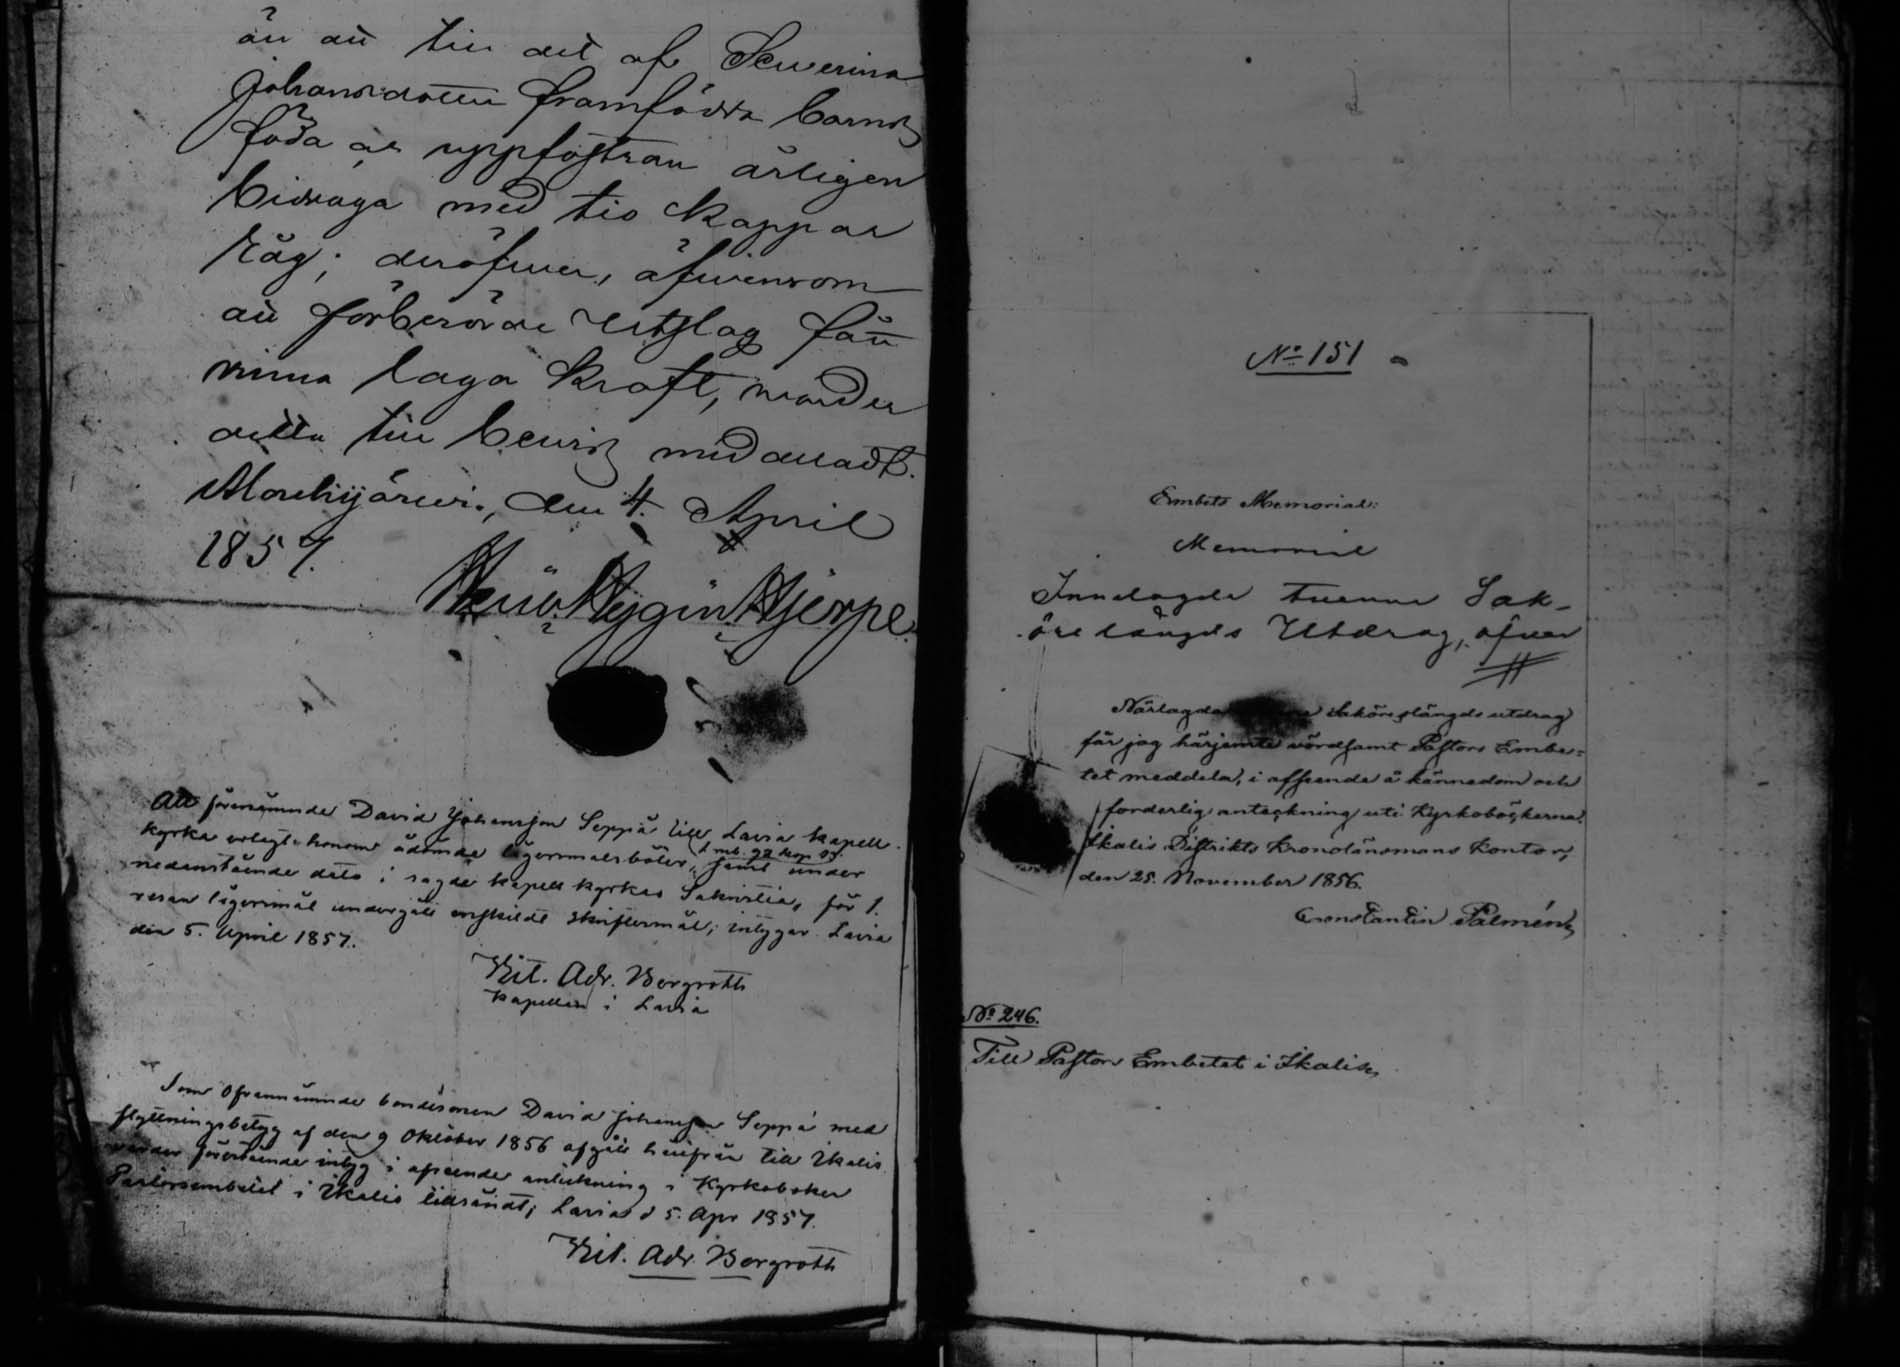 än att till det af Sewerina
Johansdotter framfödda barns
föda och uppfostran årligen
bidraga med tio kappar
Råg; deröfwer, äfwensom
att förberörde Utslag fått
winna laga kraft, warder
detta till bewis meddeladt.
Mouhijärwi, den 4. April
1857.
Hjerpe.
Att förenämnde David Johansson Seppä till Lavia kapell
kyrka erlagt honom ådömda lägersmålsböter, 1 rub. 92 kop. Sr. samt under
nedanstående dato i sagde kapell kyrkas Sakristia, för 1.
resan lägersmål undergått enskildt skriftermål; intygar Lavia
den 5. April 1857.
Vit. Adr. Bergroth
Kapellan i Lavia
Som ofvannämnde bondesonen David Johansson Seppä med
flyttningsbetyg af den 9 Oktober 1856 afgått härifrån till Ikalis
warder förestående intyg i afseende anteckning i Kyrkoboken
Pastorsembetet i Ikalis tillsändt; Lavia d 5. Apr 1857.
Vit. Adr. Bergroth
No 151
Embets Memorial:
Memorial
Innelagde twenne Sak-
öre längds Utdrag, öfwer
Närlagda Saköreslängds utdrag
får jag härjemte vördsamt Pastors Embe-
tet meddela, i afseende å kännedom och
foderlig anteckning uti Kyrkoböckerna.
Ikalis Distrikts Kronolänsmans Kontor,
den 25. November 1856.
Constantin Palmén
No 246.
Till Pastors Embetet i Ikalis